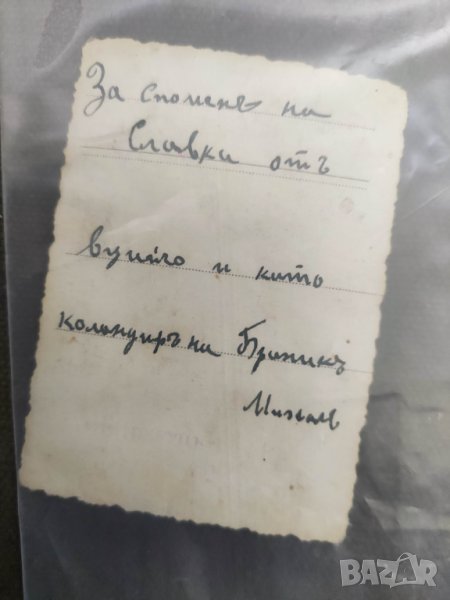 За споменъ на
Славка отъ
вуйчо и като
командиръ на Броникъ
Михаль
BAZAR